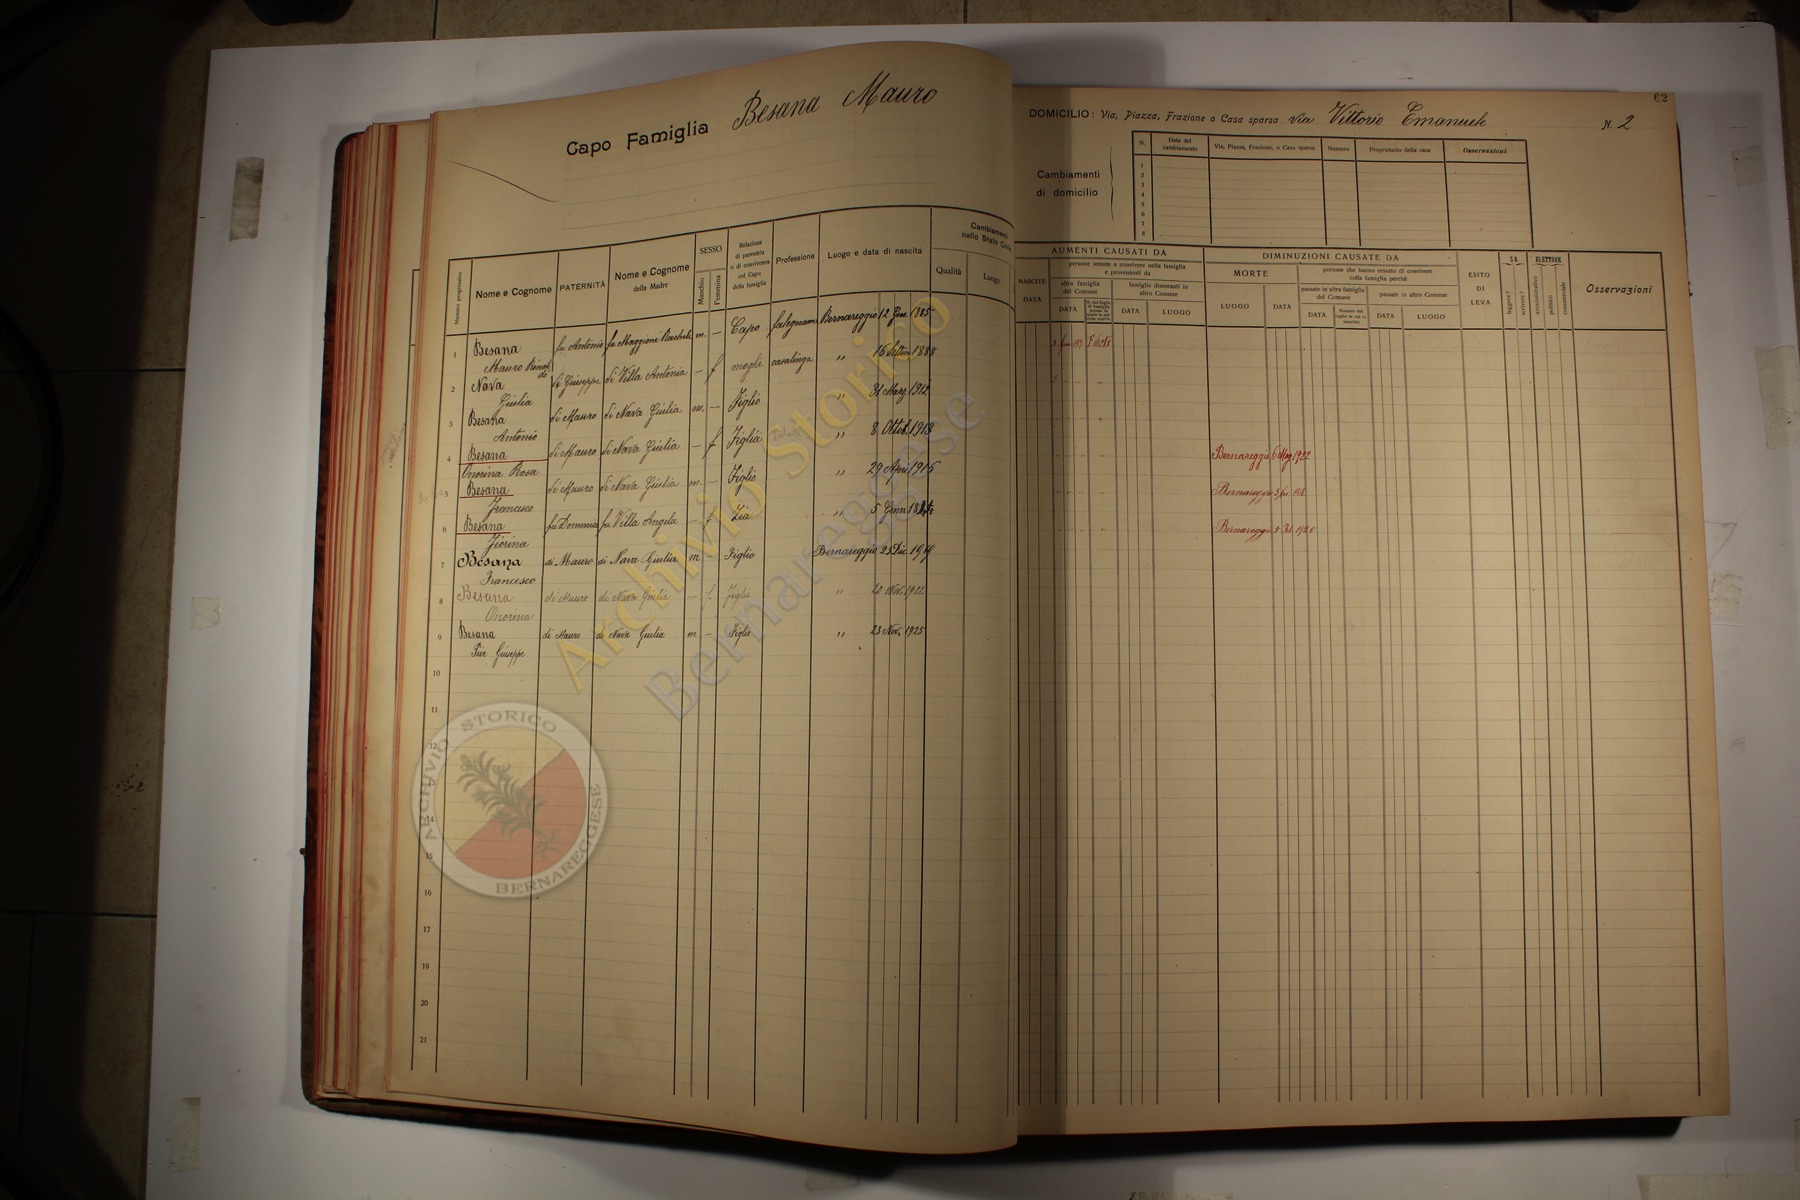 Capo Famiglia Besana Mauro
62
DOMICILIO: Via, Piazza, Frazione o Casa sparsa via Vittorio Emanuele N. 2
Cambiamenti di domicilio
N. Data del cambiamento Via, Piazza, Frazione, o Casa sparsa Numero Proprietario della casa Osservazioni
1
2
3
4
5
6
7
8
Numero progressivo Nome e Cognome PATERNITÀ Nome e Cognome della Madre SESSO Maschio Femmina Relazione di parentela o di convivenza col Capo della famiglia Professione Luogo e data di nascita Cambiamenti nello Stato Civile Qualità Luogo
1 Besana Mauro fu Antonio fu Maggioni Rachele m. — Capo falegname Bernareggio 12 Gen. 1885
2 Nava Giulia di Giuseppe di Villa Antonia — f moglie casalinga " 16 Settem 1888
3 Besana Antonio di Mauro di Nava Giulia m. — Figlio " 31 Marz. 1912
4 Besana Onorina Rosa di Mauro di Nava Giulia — f Figlia " 8 Ottob. 1913
5 Besana Francesco di Mauro di Nava Giulia m. — Figlio " 29 Apri. 1915
6 Besana Fiorina fu Domenico fu Villa Angela — f Zia " 5 Genn
7 Besana Francesco di Mauro di Nava Giulia m — Figlio Bernareggio 23 Dic 1919
8 Besana Onorina di Mauro di Nava Giulia — f. Figlia " 20 Nov. 1922
9 Besana Pier Giuseppe di Mauro di Nava Giulia m — Figlio " 23 Nov. 1925
10
11
12
13
14
15
16
17
18
19
20
21
AUMENTI CAUSATI DA
NASCITE DATA
persone venute a convivere nella famiglia e provenienti da
altra famiglia del Comune
famiglie dimoranti in altro Comune
DATA DATA LUOGO
DIMINUZIONI CAUSATE DA
MORTE LUOGO DATA
persone che hanno cessato di convivere colla famiglia perchè
passate in altra famiglia del Comune
passate in altro Comune
DATA DATA LUOGO
ESITO DI LEVA
SA leggere? scrivere?
ELETTORE amministrativo politico commerciale
Osservazioni
Bernareggio 6 Mag. 1922
Bernareggio
Bernareggio 5 Feb. 1920
Archivio Storico
Bernareggese
ARCHIVIO STORICO
BERNAREGGESE